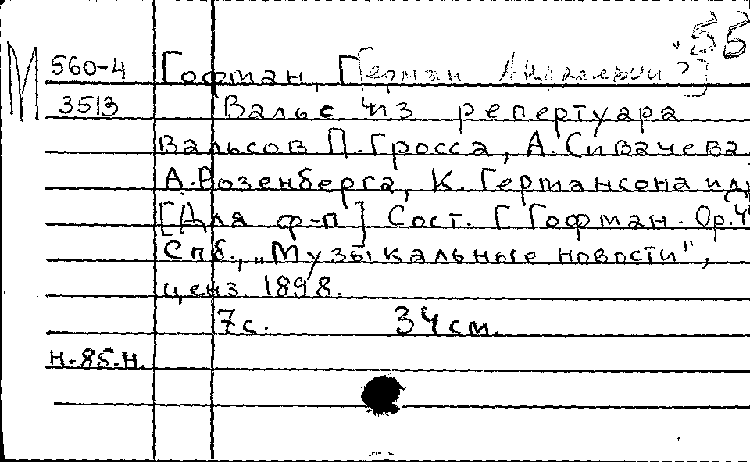 55
М 560-4 Гофман, Г[ерман
3513 Вальс из репертуара
вальсов П. Гросса, А. Сивачева,
А. Розенберга, К. Германсона и др
[Для ф-п] Сост. Г Гофман. Op. 4
Спб., „Музыкальные новости",
ценз. 1898.
7с. 34см.
Н.-85.Н.